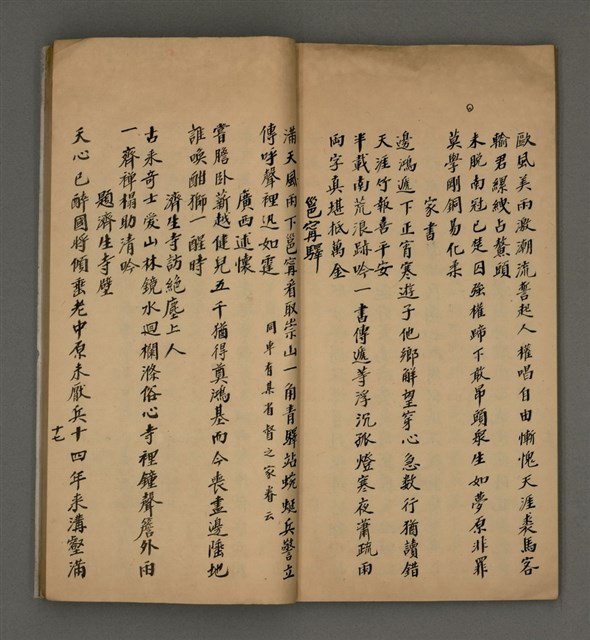 歐風美雨激潮流誓起人權唱自由慚愧天涯裘馬客
輸君縲絏占鰲頭
未脫南冠已楚囚強權蹄下敢昂頭眾生如夢原非罪
莫學剛銅易化柔
家書
邊鴻遞下正宵寒遊子他鄉解望穿心急數行猶讀錯
天涯竹報喜平安
半載南荒浪跡吟一書傳遞等浮沉孤燈寒夜瀟疏雨
両字真堪抵萬金
邕寗驛
滿天風雨下邕寗看取崇山一角青驛站蜿蜒兵警立
傳呼聲裡迅如霆
同車有某省督之家眷云
廣西述懷
嘗膽卧薪越健兒五千猶得奠鴻基而今喪盡邊陲地
誰喚酣獅一醒時
濟生寺訪絕塵上人
古來奇士愛山林鏡水迴欄滌俗心寺裡鐘聲簷外雨
一齊禅榻助清吟
題濟生寺壁
天心已醉國將傾耋老中原未厭兵十四年來溝壑滿
十七